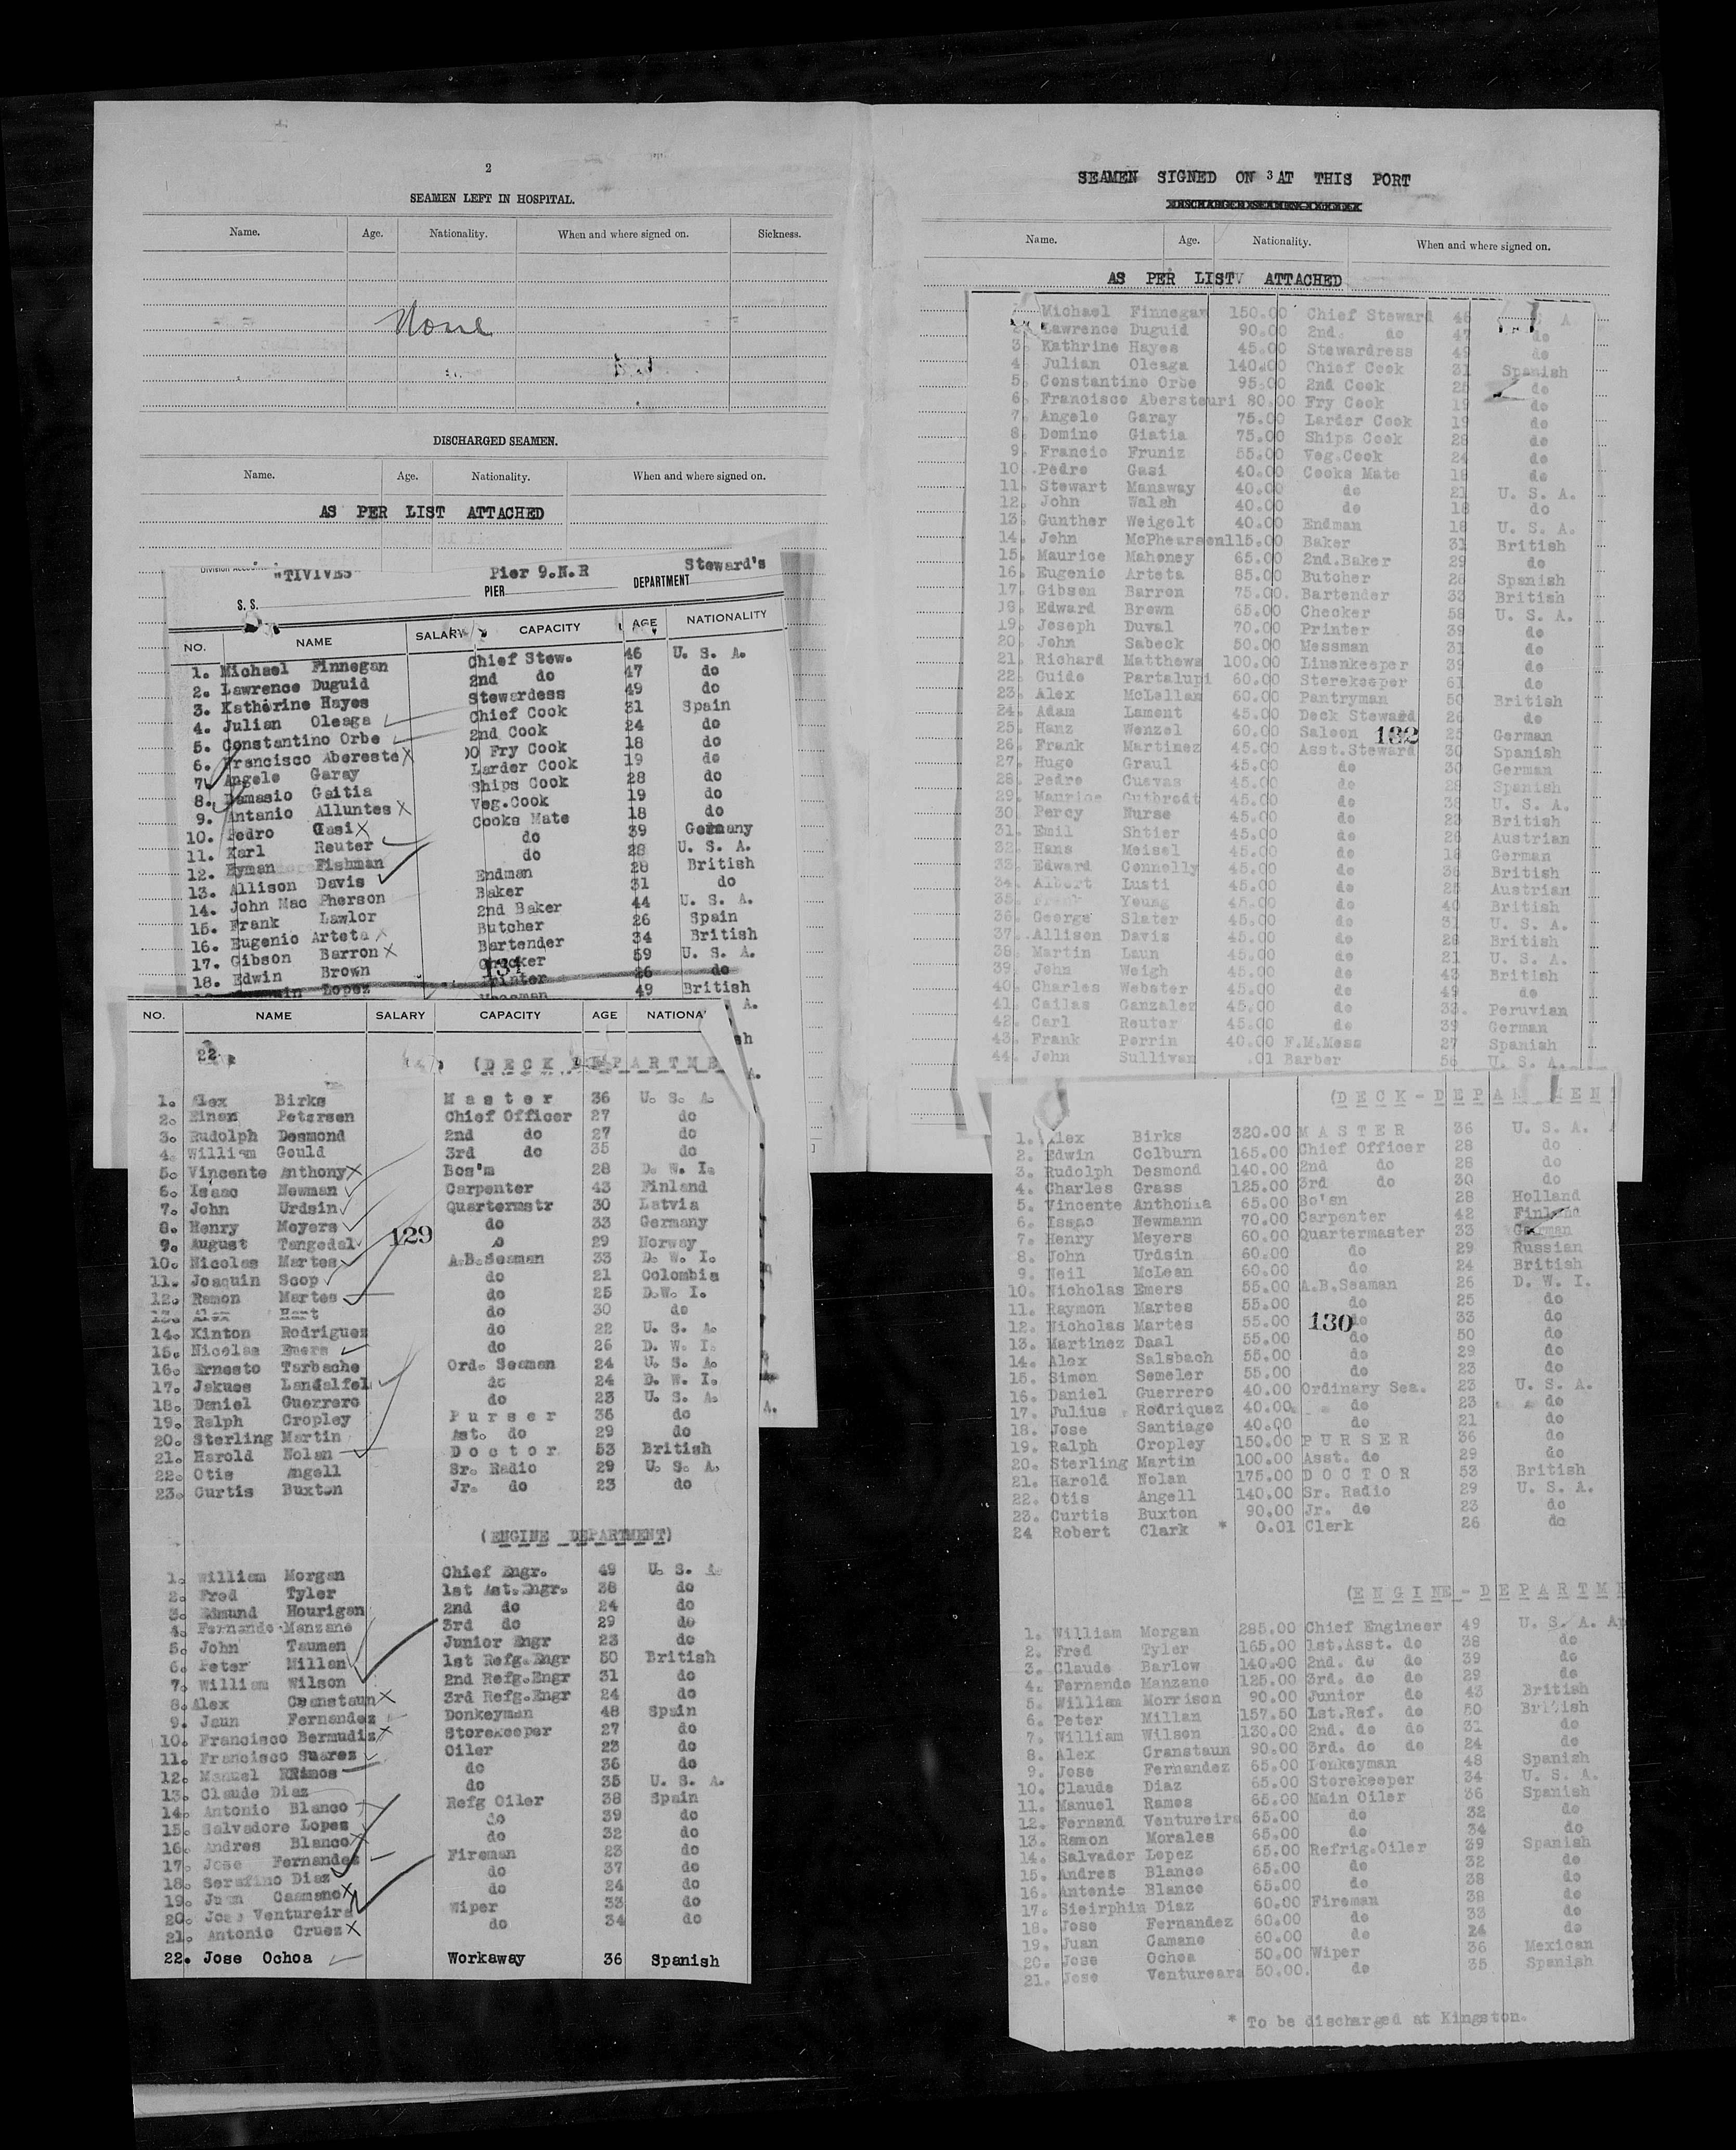 2
SEAMEN LEFT IN HOSPITAL.
Name. Age. Nationality. When and where signed on. Sickness.
None
DISCHARGED SEAMEN.
Name. Age. Nationality. When and where signed on.
AS PER LIST ATTACHED
"TIVIVES" Pier 9.N.R Steward's
S. S. PIER DEPARTMENT
NO. NAME SALARY CAPACITY AGE NATIONALITY
1. Michael Finnegan Chief Stew. 46 U. S. A.
2. Lawrence Duguid 2nd do 47 do
3. Katherine Hayes Stewardess 49 do
4. Julian Oleaga Chief Cook 31 Spain
5. Constantino Orbe 2nd Cook 24 do
6. Francisco Abereste Fry Cook 18 do
7. Angelo Garay Larder Cook 19 do
8. Damasio Gaitia Ships Cook 28 do
9. Antanio Alluntes Veg.Cook 19 do
10. Pedro Gasi Cooks Mate 18 do
11. Karl Reuter do 39 Germany
12. Hyman Fishman do 28 U. S. A.
13. Allison Davis Endman 28 British
14. John Mac Pherson Baker 31 do
15. Frank Lawlor 2nd Baker 44 U. S. A.
16. Eugenio Arteta Butcher 26 Spain
17. Gibson Barron Bartender 34 British
18. Edwin Brown Checker 59 U. S. A.
131
Lopez 49 British
NO. NAME SALARY CAPACITY AGE
22
(DECK
1. Alex Birks Master 36 U. S. A.
2. Einen Petersen Chief Officer 27 do
3. Rudolph Desmond 2nd do 27 do
4. William Gould 3rd do 35 do
5. Vincente Anthony Bos'm 28 D. W. I.
6. Isaac Newman Carpenter 43 Finland
7. John Urdsin Quartermstr 30 Latvia
8. Henry Meyers do 33 Germany
129
9. August Tangedal 29 Norway
10. Nicolas Martes A.B.Seaman 33 D. W. I.
11. Joaquin Scop do 21 Colombia
12. Ramon Martes do 25 D.W. I.
13. Alex do 30 do
14. Kinton Rodriguez do 22 U. S. A.
15. Nicolas Emers do 26 D. W. I.
16. Ernesto Tarbache Ord. Seaman 24 U. S. A.
17. Jakues Landalfel do 24 D. W. I.
18. Daniel Guerrero do 23 U. S. A.
19. Ralph Cropley Purser 36 do
20. Sterling Martin Ast. do 29 do
21. Harold Nolan Doctor 53 British
22. Otis Angell Sr. Radio 29 U. S. A.
23. Curtis Buxton Jr. do 23 do
(ENGINE DEPARTMENT)
1. William Morgan Chief Engr. 49 U. S. A.
2. Fred Tyler 1st Ast.Engr. 38 do
3. Edmund Hourigan 2nd do 24 do
4. Fernando Manzano 3rd do 29 do
5. John Tauman Junior Engr 23 do
6. Peter Millan 1st Refg.Engr 50 British
7. William Wilson 2nd Refg.Engr 31 do
8. Alex Cranstaun 3rd Refg.Engr 24 do
9. Jaun Fernandez Donkeyman 48 Spain
10. Francisco Bermudiz Storekeeper 27 do
11. Francisco Suarez Oiler 23 do
12. Manuel RRamos do 36 do
13. Claude Diaz do 35 U. S. A.
14. Antonio Blanco Refg Oiler 38 Spain
15. Salvadore Lopes do 39 do
16. Andres Blanco do 32 do
17. Jose Fernandes Fireman 23 do
18. Serafino Diaz do 37 do
19. Juan Caamano do 24 do
20. Jose Ventureira Wiper 33 do
21. Antonio Cruez do 34 do
22. Jose Ochoa Workaway 36 Spanish
SEAMEN SIGNED ON 3 AT THIS PORT
Name. Age. Nationality. When and where signed on.
AS PER LIST ATTACHED
Michael Finnegan 150.00 Chief Steward 46
Lawrence Duguid 90.00 2nd. do 47 do
3. Kathrine Hayes 45.00 Stewardress 49 do
4. Julian Oleaga 140.00 Chief Cook 31 Spanish
5. Constantino Orbe 95.00 2nd Cook 25 do
6. Francisco Abersteuri 80.00 Fry Cook 19 do
7. Angelo Garay 75.00 Larder Cook 19 do
8. Domino Giatia 75.00 Ships Cook 28 do
9. Francio Fruniz 55.00 Veg.Cook 24 do
10. Pedro Gasi 40.00 Cooks Mate 18 do
11. Stewart Manaway 40.00 do 21 U. S. A.
12. John Walsh 40.00 do 18 do
13. Gunther Weigelt 40.00 Endman 18 U. S. A.
14. John McPhearson 115.00 Baker 31 British
15. Maurice Mahoney 65.00 2nd.Baker 29 do
16. Eugenio Arteta 85.00 Butcher 26 Spanish
17. Gibson Barron 75.00. Bartender 33 British
18. Edward Brown 65.00 Checker 58 U. S. A.
19. Joseph Duval 70.00 Printer 39 do
20. John Sabeck 50.00 Messman 31 do
21. Richard Matthews 100.00 Linenkeeper 39 do
22. Guido Partalupi 60.00 Storekeeper 61 do
23. Alex McLellan 60.00 Pantryman 50 British
24. Adam Lament 45.00 Deck Steward 26 do
25. Hanz Wenzel 60.00 Saloon 25 German
132
26. Frank Martinez 45.00 Asst.Steward 30 Spanish
27. Hugo Graul 45.00 do 30 German
28. Pedro Cuevas 45.00 do 28 Spanish
29. Maurice Gutbrodt 45.00 do 38 U. S. A.
30. Percy Nurse 45.00 do 23 British
31. Emil Shtier 45.00 do 26 Austrian
32. Hans Meisel 45.00 do 18 German
33. Edward Connelly 45.00 do 36 British
34. Albert Lusti 45.00 do 25 Austrian
35. Frank Young 45.00 do 40 British
36. George Slater 45.00 do 31 U. S. A.
37. Allison Davis 45.00 do 28 British
38. Martin Laun 45.00 do 21 U. S. A.
39. John Weigh 45.00 do 43 British
40. Charles Webster 45.00 do 49 do
41. Cailas Ganzalez 45.00 do 33. Peruvian
42. Carl Reuter 45.00 do 39 German
43. Frank Perrin 40.00 F.M.Mess 27 Spanish
44. John Sullivan .01 Barber 56 U. S. A.
(DECK-DEPARTMENT
1. Alex Birks 320.00 MASTER 36 U. S. A.
2. Edwin Colburn 165.00 Chief Officer 28 do
3. Rudolph Desmond 140.00 2nd do 28 do
4. Charles Grass 125.00 3rd do 30 do
5. Vincente Anthonia 65.00 Bo'sn 28 Holland
6. Issac Newmann 70.00 Carpenter 42 Finland
7. Henry Meyers 60.00 Quartermaster 33 German
8. John Urdsin 60.00 do 29 Russian
9. Neil McLean 60.00 do 24 British
10. Nicholas Emers 55.00 A.B.Seaman 26 D. W. I.
11. Raymon Martes 55.00 do 25 do
12. Nicholas Martes 55.00 130 33 do
13. Martinez Daal 55.00 do 50 do
14. Alex Salsbach 55.00 do 29 do
15. Simon Semeler 55.00 do 23 do
16. Daniel Guerrero 40.00 Ordinary Sea. 23 U. S. A.
17. Julius Rodriquez 40.00 do 23 do
18. Jose Santiago 40.00 do 21 do
19. Ralph Cropley 150.00 PURSER 36 do
20. Sterling Martin 100.00 Asst. do 29 do
21. Harold Nolan 175.00 DOCTOR 53 British
22. Otis Angell 140.00 Sr. Radio 29 U. S. A.
23. Curtis Buxton 90.00 Jr. do 23 do
24 Robert Clark * 0.01 Clerk 26 do
(ENGINE-DEPARTME
1. William Morgan 285.00 Chief Engineer 49 U. S. A.
2. Fred Tyler 165.00 1st.Asst. do 38 do
3. Claude Barlow 140.00 2nd. do do 39 do
4. Fernando Manzano 125.00 3rd. do do 29 do
5. William Morrison 90.00 Junior do 43 British
6. Peter Millan 157.50 1st.Ref. do 50 British
7. William Wilson 130.00 2nd. do do 31 do
8. Alex Cranstaun 90.00 3rd. do do 24 do
9. Jose Fernandez 65.00 Donkeyman 48 Spanish
10. Claude Diaz 65.00 Storekeeper 34 U. S. A.
11. Manuel Rames 65.00 Main Oiler 36 Spanish
12. Fernand Ventureira 65.00 do 32 do
13. Ramon Morales 65.00 do 34 do
14. Salvador Lopez 65.00 Refrig.Oiler 39 Spanish
15. Andres Blanco 65.00 do 32 do
16. Antonio Blanco 65.00 do 38 do
17. Sieirphin Diaz 60.00 Fireman 38 do
18. Jose Fernandez 60.00 do 33 do
19. Juan Camano 60.00 do 24 do
20. Jose Ochoa 50.00 Wiper 36 Mexican
21. Jose Ventureara 50.00. do 35 Spanish
* To be discharged at Kingston.